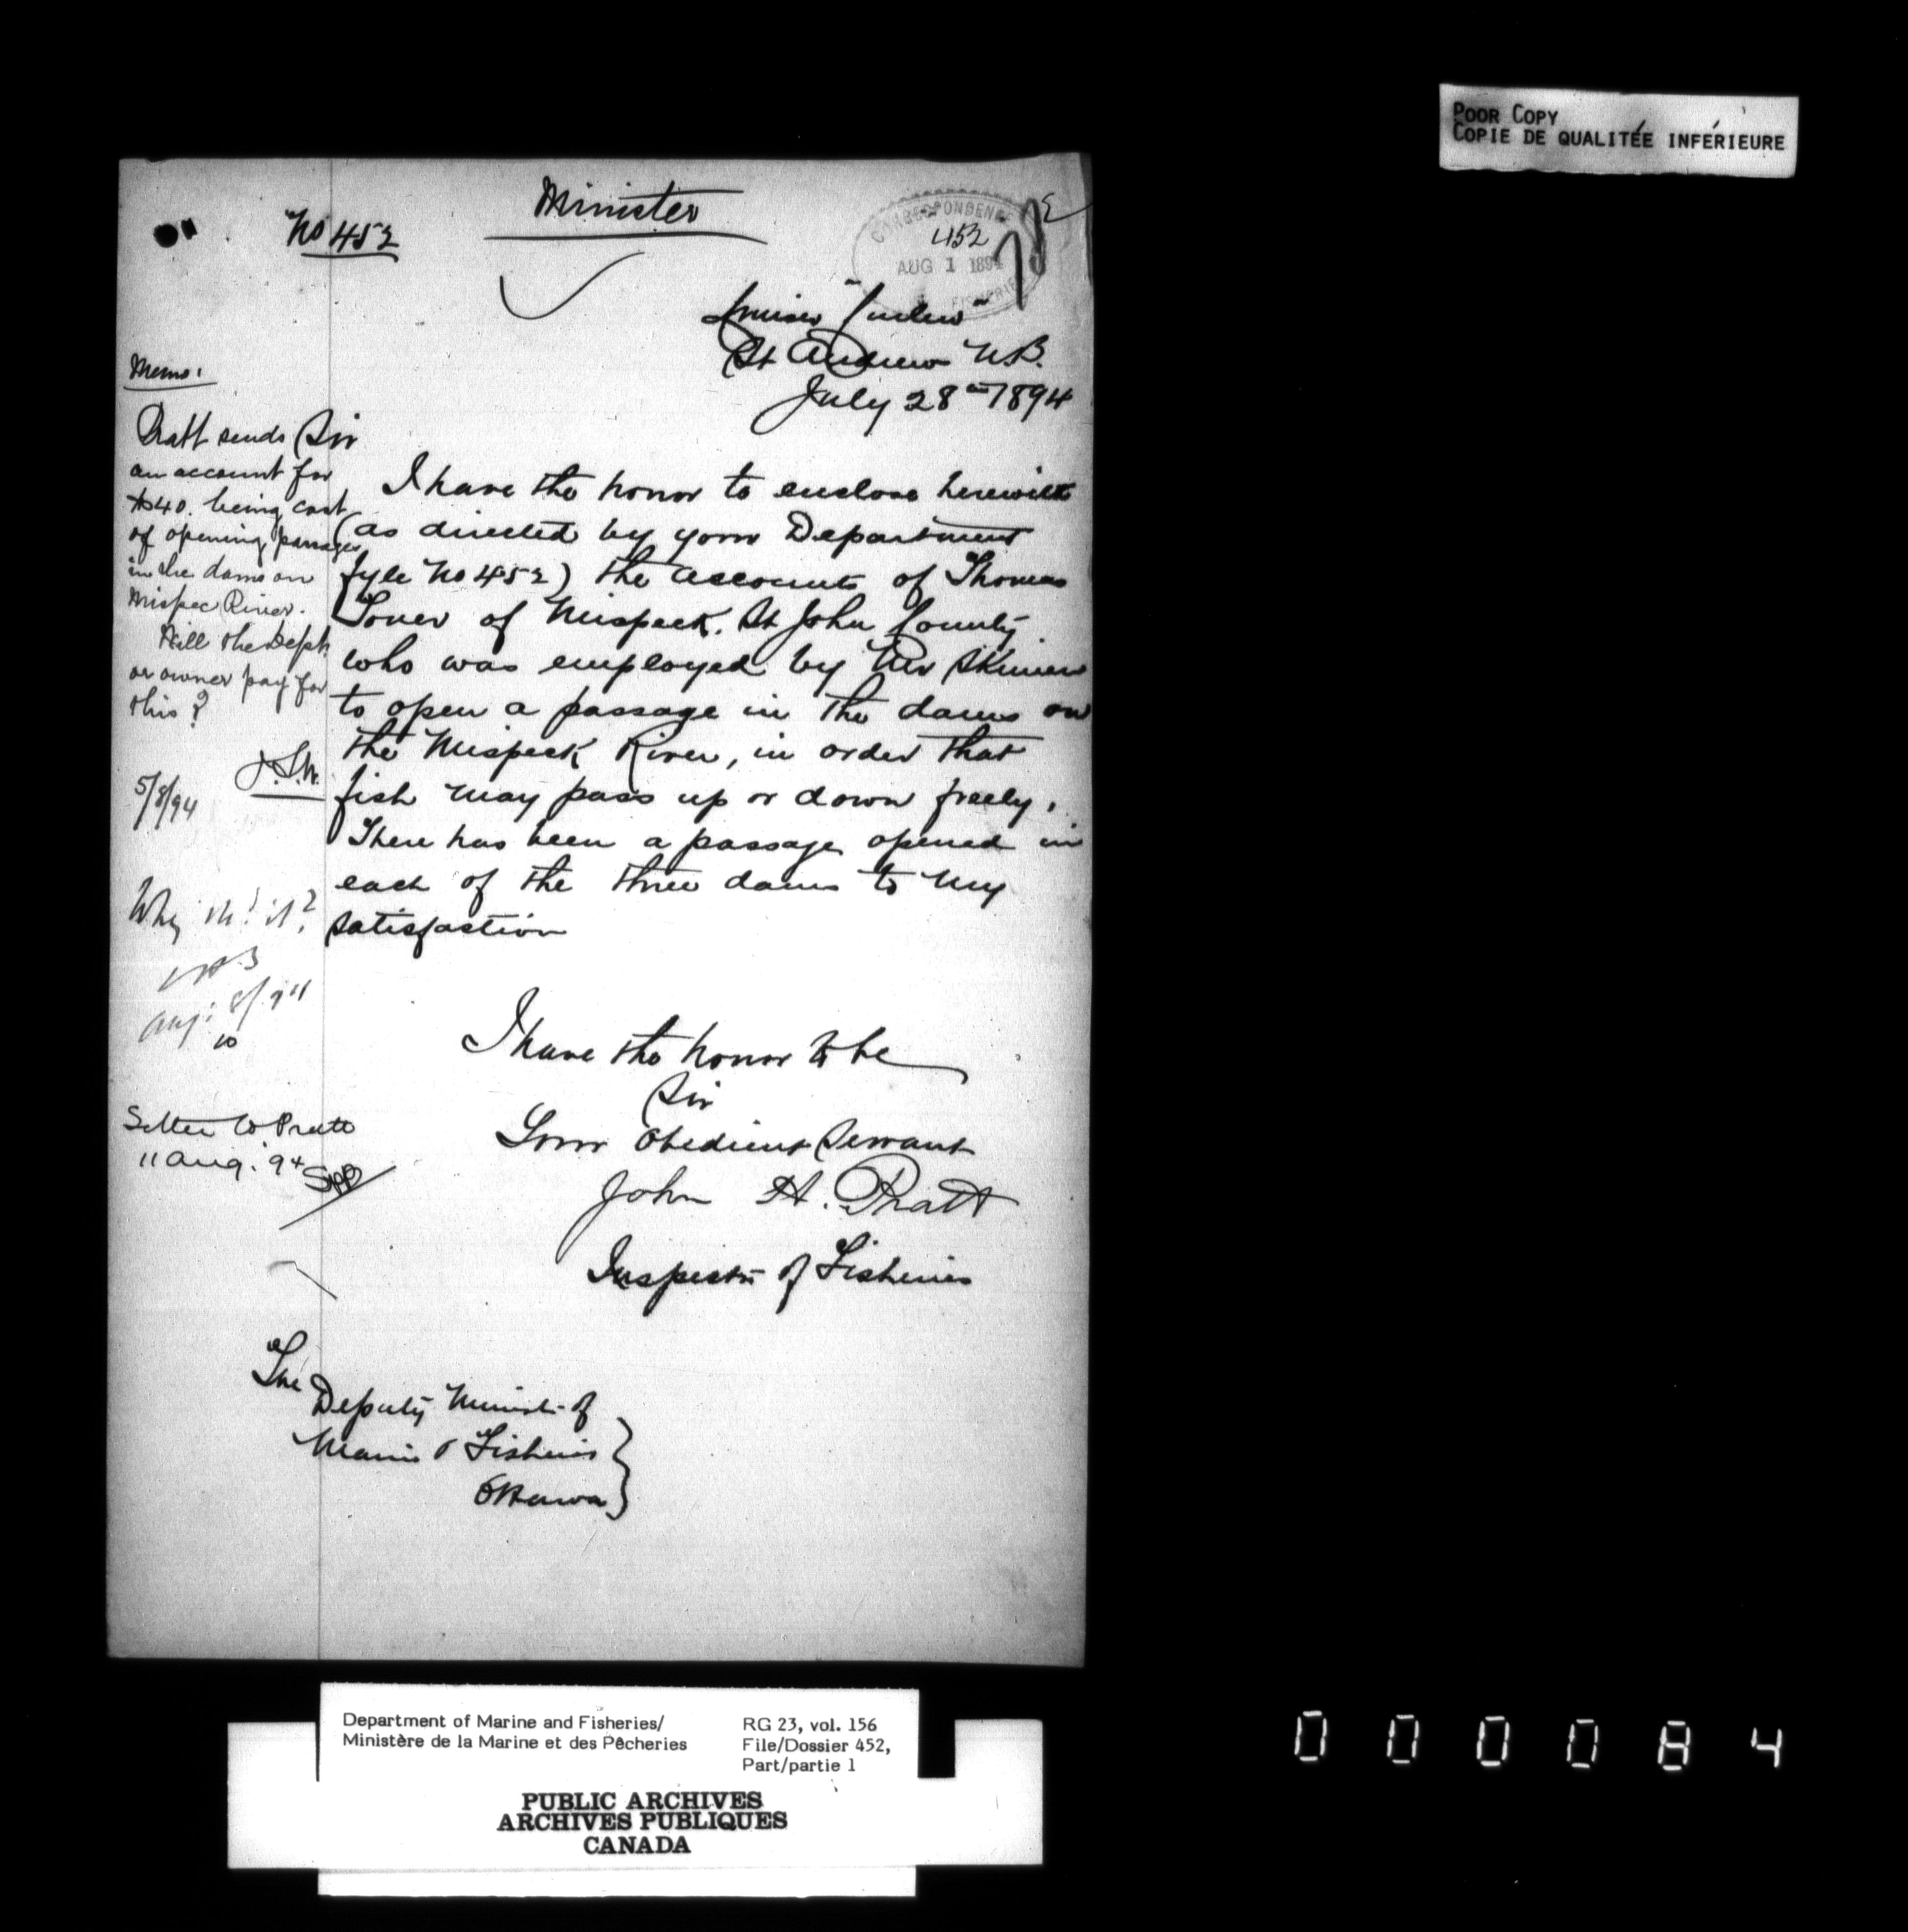 POOR COPY
COPIE DE QUALITÉE INFÉRIEURE
Minister
No 452
CORRESPONDENCE
452
AUG 1 1894
FISHERIES
Cruiser "Curlew"
St Andrews N.B.
July 28th 1894
Memo:
Pratt sends
an account for
$40. being cost
of opening passages
in the dams on
Mispec River.
Will the Dept.
or owner pay for
this?
5/8/94
Why
Aug: 8/94
10
Letter to Pratt
11 Aug. 94
Sir
I have the honor to enclose herewith
(as directed by your Department
fyle No 452) the accounts of Thomas
of Mispeck. St John County
who was employed by Mr Skinner
to open a passage in the dams on
the Mispeck River, in order that
fish may pass up or down freely.
There has been a passage opened in
each of the three dams to my
satisfaction
I have the honor to be
Sir
Your Obedient Servant
John H. Pratt
Inspector of Fisheries
The
Deputy Minister of
Marine & Fisheries
Ottawa
Department of Marine and Fisheries/
Ministère de la Marine et des Pêcheries
RG 23, vol. 156
File/Dossier 452,
Part/partie 1
PUBLIC ARCHIVES
ARCHIVES PUBLIQUES
CANADA
000084